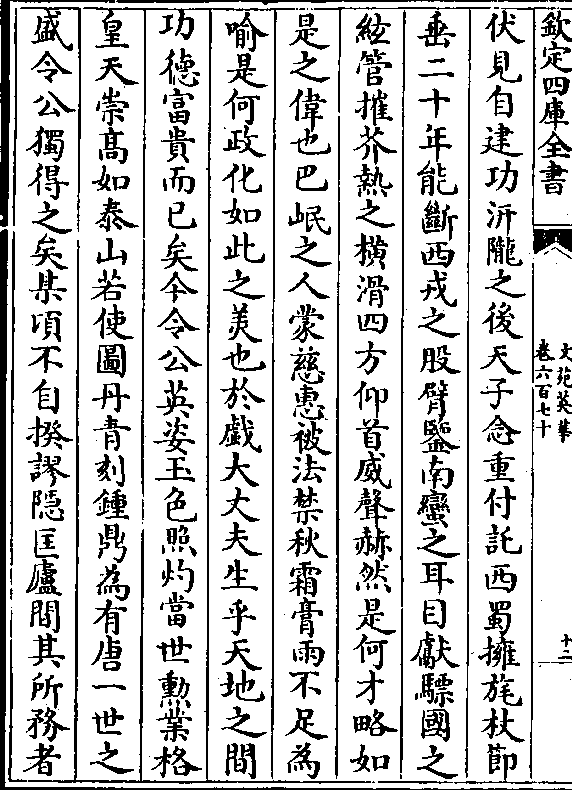 欽定四庫全書
文苑英華
卷六百七十
十二
伏見自建功汧隴之後天子念重付託西蜀擁旄杖節
垂二十年能斷西戎之股臂鑿南蠻之耳目獻驃國之
絃管摧芥熱之橫滑四方仰首威聲赫然是何才略如
是之偉也巴岷之人蒙慈惠被法禁秋霜膏雨不足為
喻是何政化如此之美也於戲大丈夫生乎天地之間
功德富貴而已矣今令公英姿玉色照灼當世勲業格
皇天崇髙如泰山若使圖丹青刻鍾鼎為有唐一世之
盛令公獨得之矣某頃不自揆謬隠匡廬間其所務者